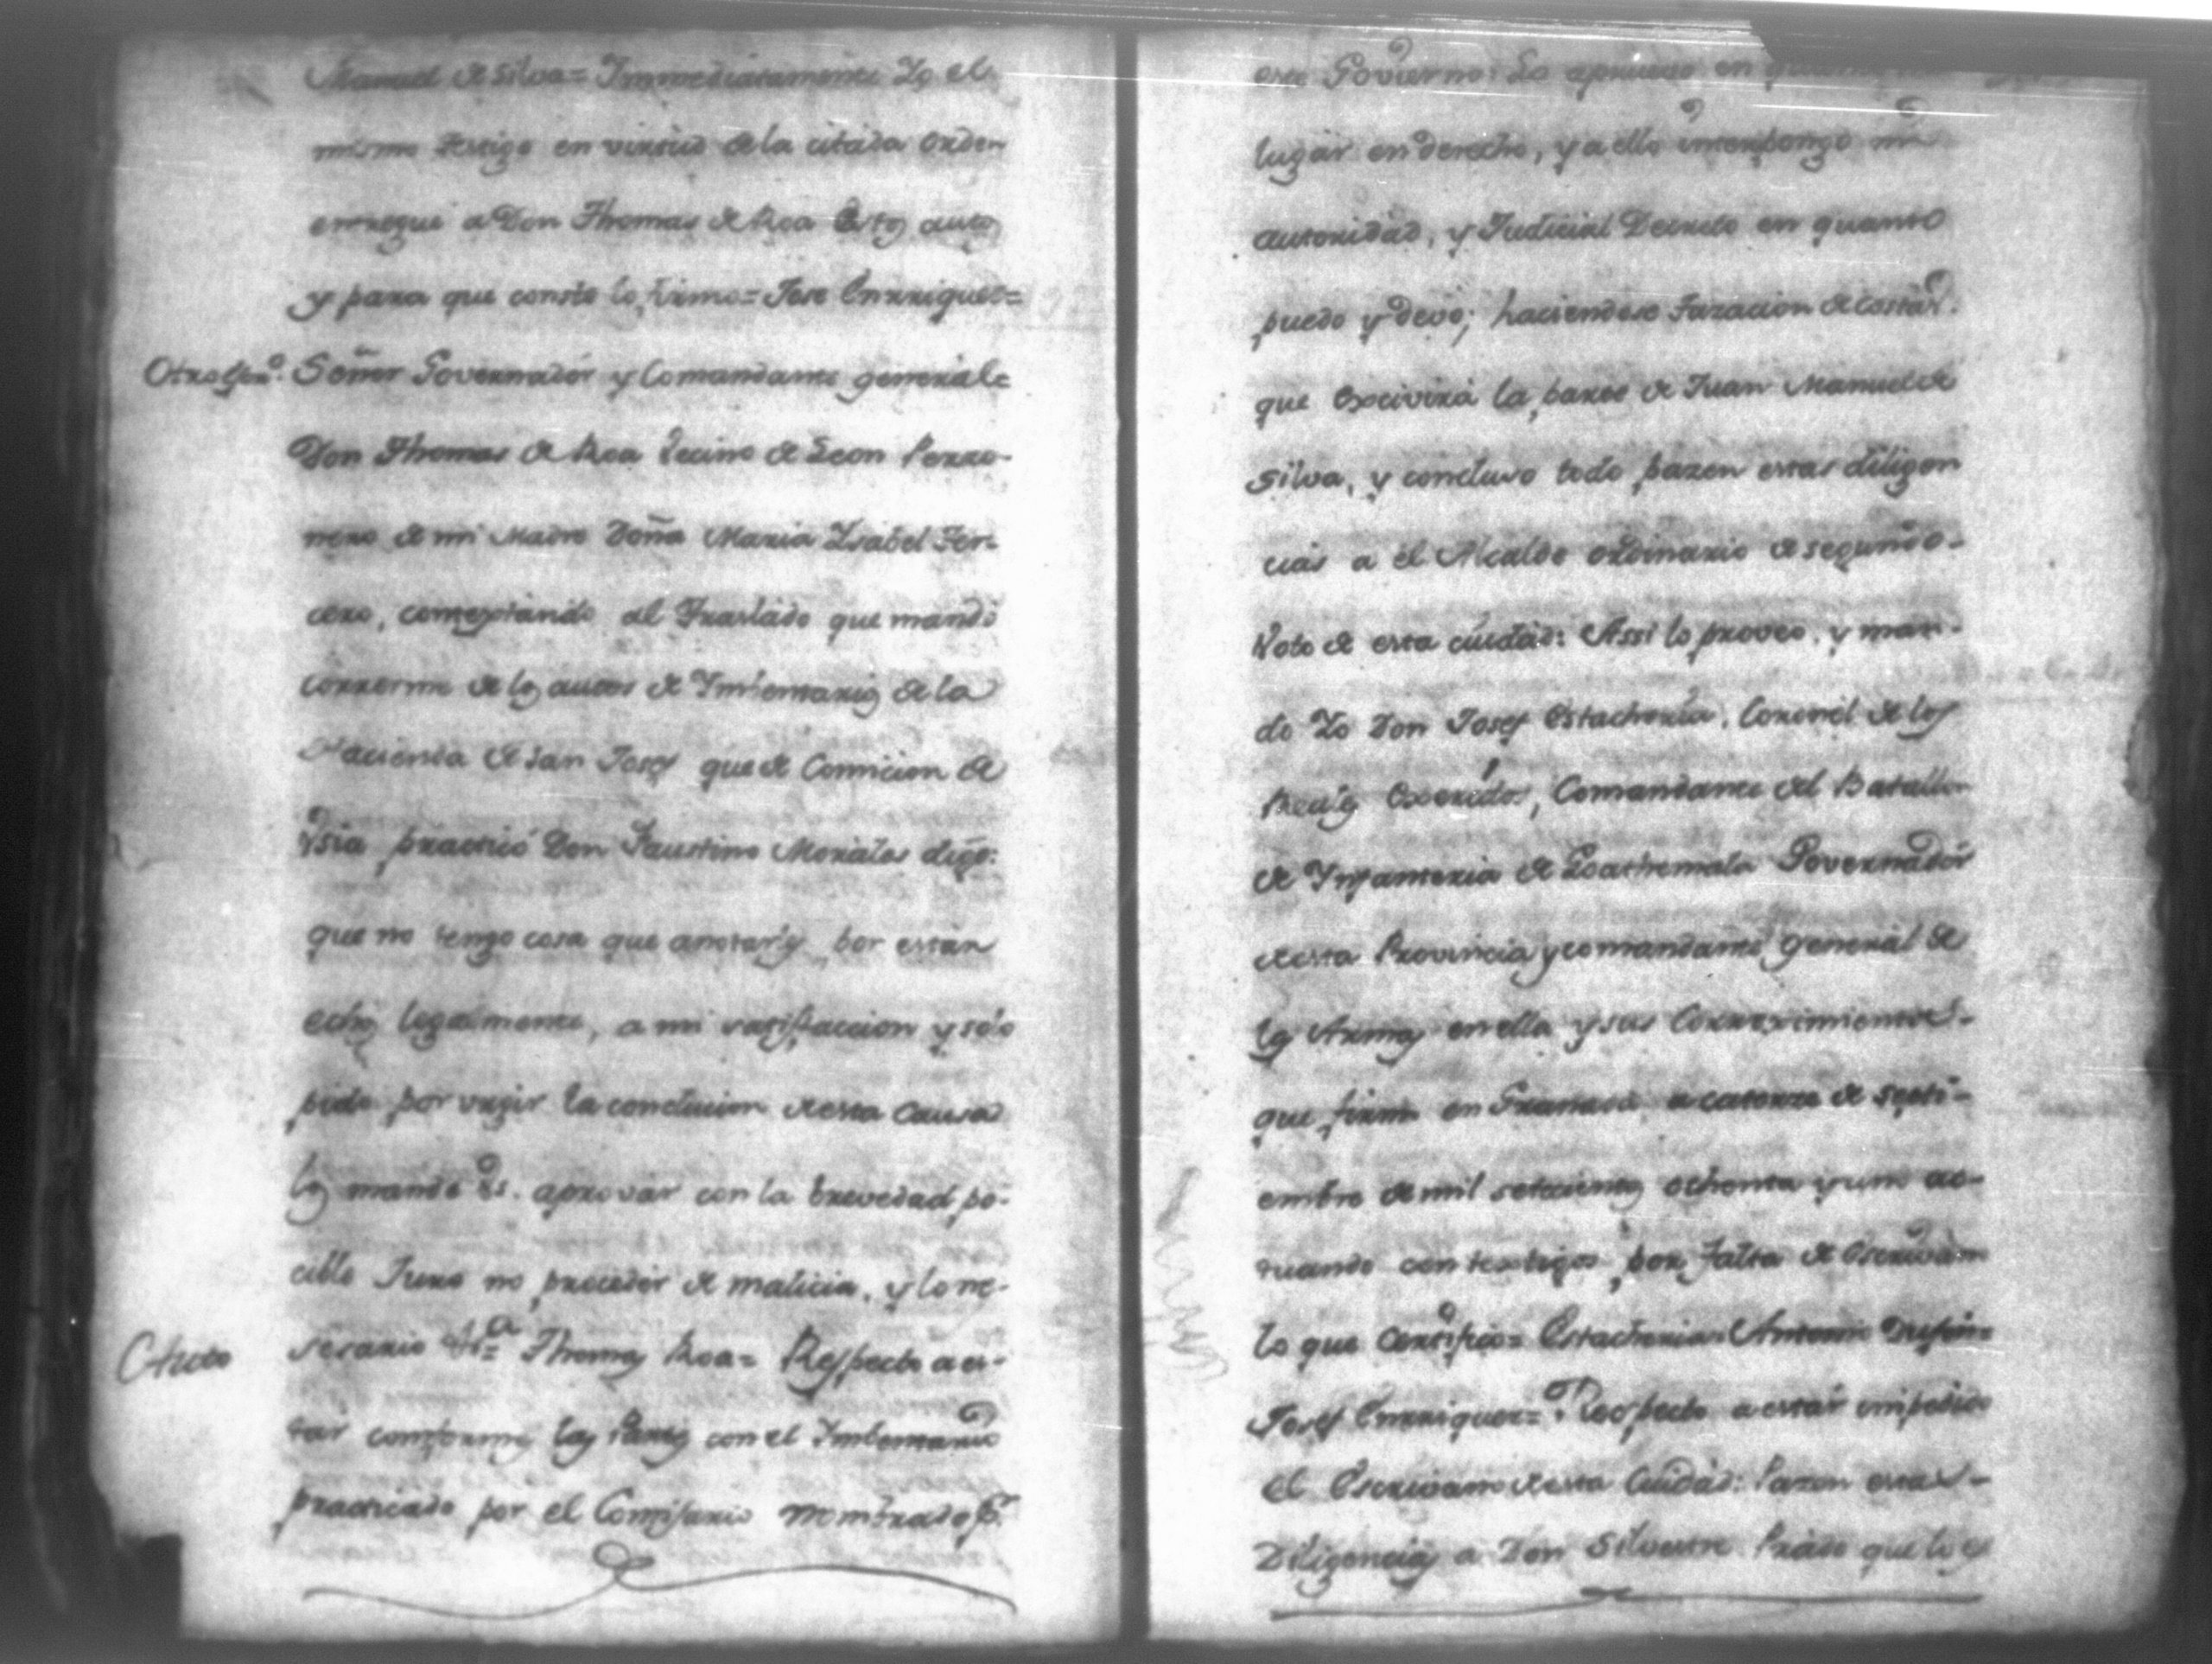 Manuel de Silva= Immediatamente Yo el
mismo testigo en virtud de la citada orden
entregue a Don Thomas de Roa estos autos
y para que conste lo firmo= Jose Enrriques=
Señor Governador y Comandante general=
Don Thomas de Roa Vecino de Leon Perzo-
nero de mi Madre Doña Maria Ysabel Ter-
cero, contextando al Traslado que mandó
correrme de los autos de Imbentarios de la
Hacienda de San Josef que de Comicion de
Vsia practicó Don Faustino Morales digo:
que no tengo cosa que anotarles por estar
echos legalmente, a mi satisfaccion y solo
pido por urgir la conclucion de esta Causa
los mande Vs. aprovar con la brevedad po-
cible Juro no proceder de malicia, y lo ne-
Auto
sesario &ra Thomas Roa= Respecto a es-
tar conformes las Partes con el Imbentario
practicado por el Comisario nombrado pr.
este Govierno: Lo apruevo en
lugar en derecho, y a ello interpongo mi
autoridad, y Judicial Decreto en quanto
puedo y devo; haciendose Tazacion de Costas.
que Excivirá la parte de Juan Manuel de
Silva, y concluso todo pazen estas diligen
cias a el Alcalde ordinario de segundo-
Voto de esta ciudad: Assi lo proveo, y man-
do Yo Don Josef Estacheria, Coronel de los
Reales Exercitos, Comandante del Batallon
de Infanteria de Goathemala Governador
de esta Provincia y comandante general de
las Armas en ella y sus Correximientos-
que firmo en Granada a catorze de Septi-
embre de mil setecientos ochenta y uno ac-
tuando con testigos por falta de Escrivano
lo que Certifico= Estacheria= Antonio
Josef Enrriquez= Respecto a estar impedido
el Escrivano de esta Ciudad: Pazen estas-
Diligencias a Don Silvestre Prado que lo es